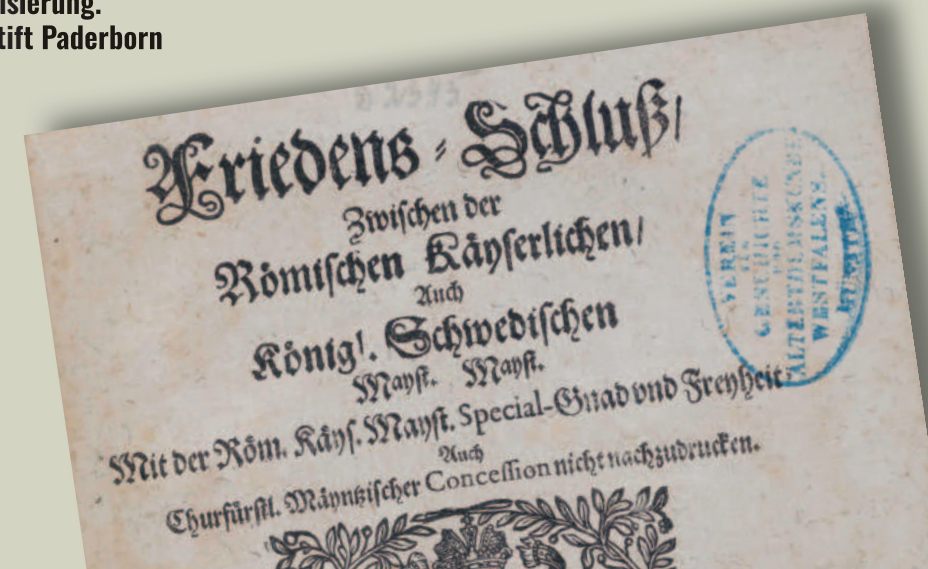 isierung.
tift Paderborn
Friedens-Schluß/
Zwischen der
Römischen Käyserlichen/
Auch
Königl. Schwedischen
Mayst. Mayst.
Mit der Röm. Käys. Mayst. Special-Gnad vnd Freyheit
Auch
Churfürstl. Mäyntzischer Concession nicht nachzudrucken.
VEREIN
GESCHICHTE
ALTERTHUMSKUNDE
WESTFALENS.